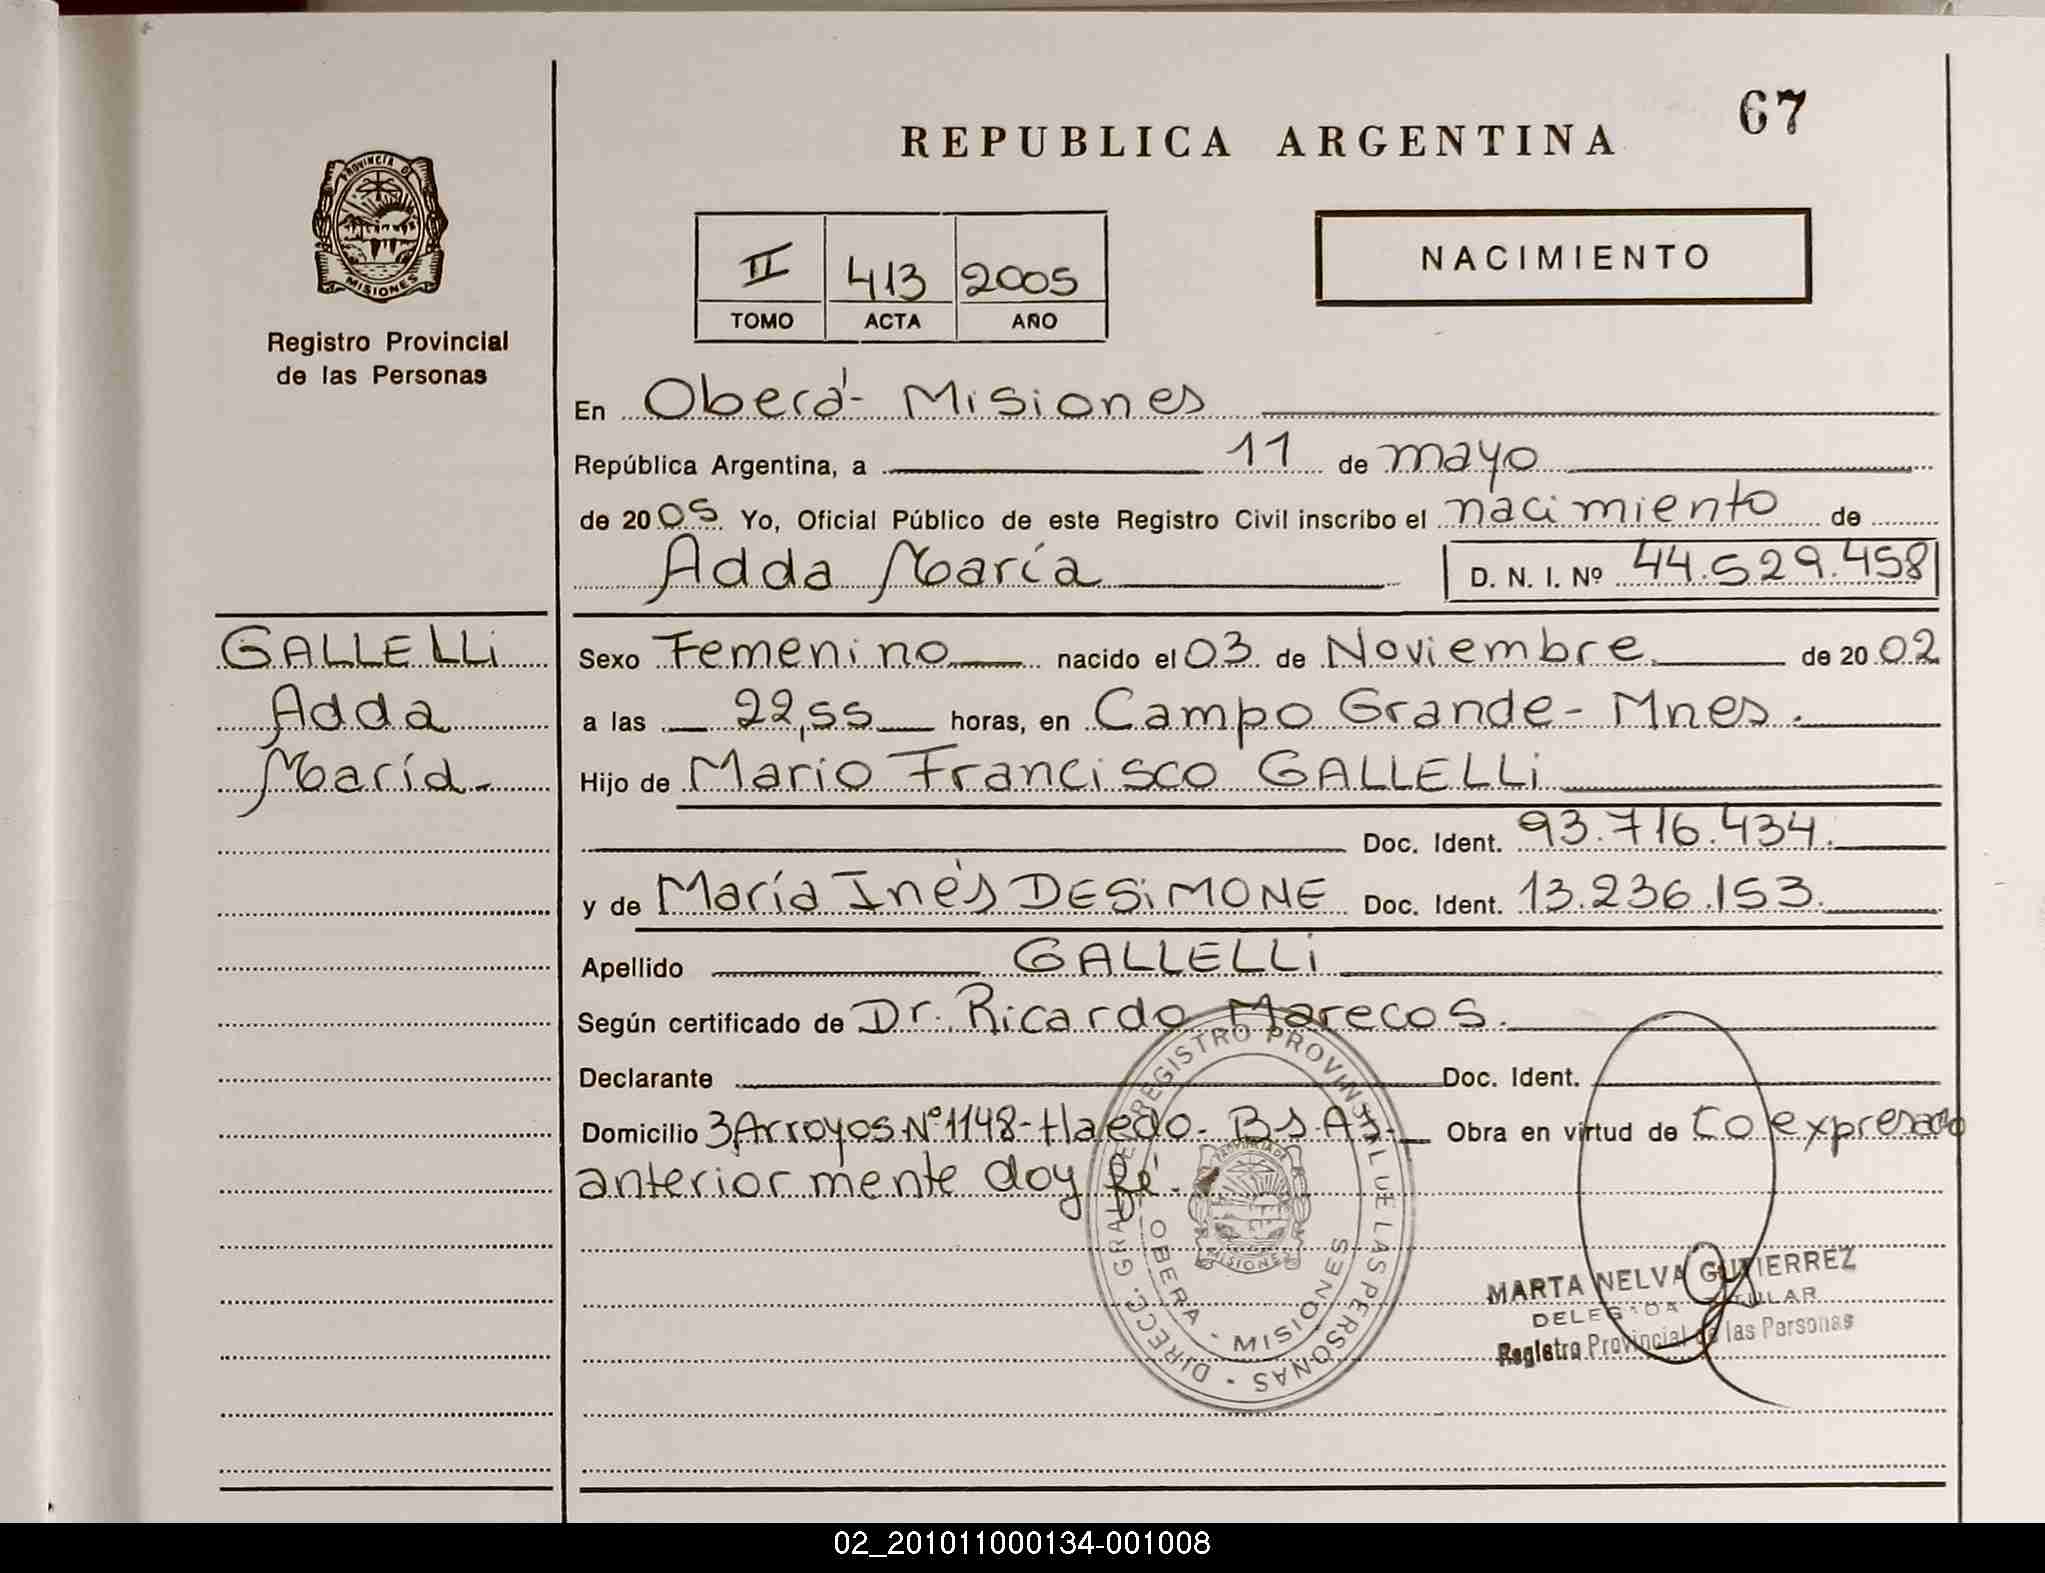 67
REPUBLICA ARGENTINA
PROVINCIA D
MISIONES
Registro Provincial
de las Personas
NACIMIENTO
II 413 2005
TOMO ACTA AÑO
En Oberá - Misiones
República Argentina, a 11 de mayo
de 2005 Yo, Oficial Público de este Registro Civil inscribo el nacimiento de
Adda María D. N. I. Nº 44.529.458
GALLELLi
Adda
María.-
Sexo Femenino nacido el 03 de Noviembre de 2002
a las 22,55 horas, en Campo Grande - Mnes.
Hijo de Mario Francisco GALLELLi
Doc. Ident. 93.716.434.
y de María Inés DESiMONE Doc. Ident. 13.236.153.
Apellido GALLELLi
Según certificado de Dr. Ricardo Marecos.
Declarante Doc. Ident.
Domicilio 3 Arroyos Nº 1148 - Haedo - Bs. As. - Obra en virtud de Lo expresado
anteriormente doy fé.
DIRECC. GRAL. DE REGISTRO PROVINCIAL DE LAS PERSONAS
PROVINCIA DE
MISIONES
OBERA - MISIONES
MARTA NELVA GUTIERREZ
DELEGADA TITULAR
Registro Provincial de las Personas
02_201011000134-001008